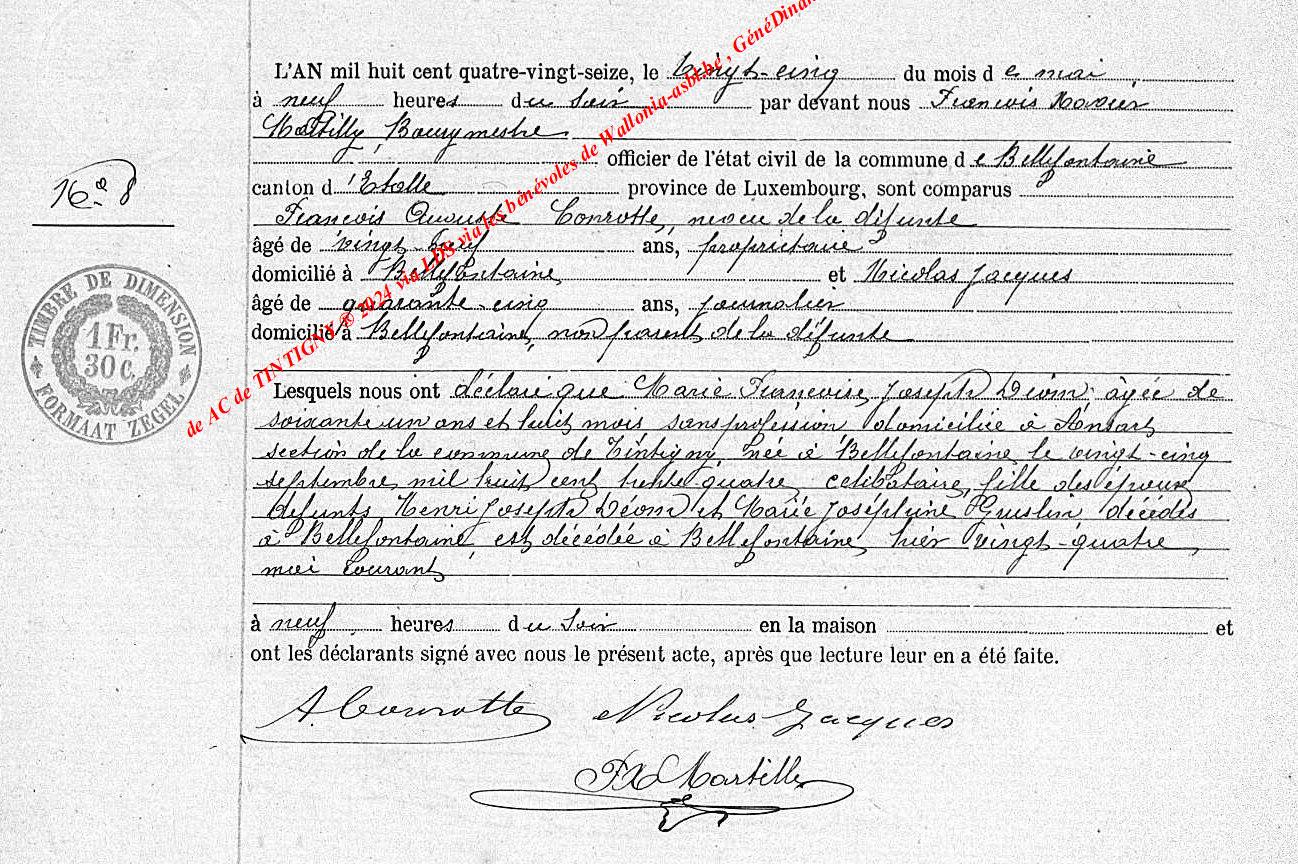 L'AN mil huit cent quatre-vingt-seize, le vingt-cinq du mois de mai
à neuf heures du soir par devant nous François Xavier
Martilly, Bourgmestre
officier de l'état civil de la commune de Bellefontaine
canton d'Etalle province de Luxembourg, sont comparus
François Auguste Conrotte, neveu de la défunte
âgé de vingt neuf ans, propriétaire
domicilié à Bellefontaine et Nicolas Jacques
âgé de quarante-cinq ans, journalier
domicilié à Bellefontaine, non parent de la défunte
Lesquels nous ont déclaré que Marie Françoise Joseph Déom âgée de
soixante un ans et huit mois sans profession domiciliée à Ansart
section de la commune de Tintigny, née à Bellefontaine le vingt-cinq
septembre mil huit cent trente quatre, célibataire, fille des époux
défunts Henri Joseph Déom et Marie Joséphine Guislin décédés
à Bellefontaine, est décédée à Bellefontaine, hier vingt-quatre
mai courant
à neuf heures du soir en la maison et
ont les déclarants signé avec nous le présent acte, après que lecture leur en a été faite.
A. Conrotte Nicolas Jacques
FX Martilly
N° 8
TIMBRE DE DIMENSION
1 Fr.
30 c.
FORMAAT ZEGEL
de AC de TINTIGNY ® 2024 via LDS via les bénévoles de Wallonia-asbl.be, GénéDinan